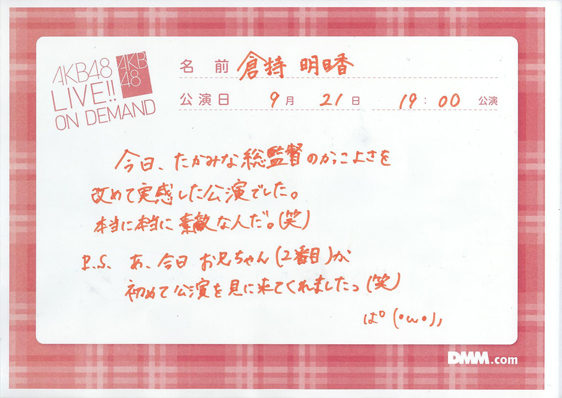 AKB48
LIVE!!
ON DEMAND
AKB
48
名前 倉持 明日香
公演日 9月 21日 19:00 公演
今日、たかみな総監督のかっこよさを
改めて実感した公演でした。
本当に本当に素敵な人だ。(笑)
P.S. あ、今日お兄ちゃん(2番目)が
初めて公演を見に来てくれましたっ(笑)
ぱ°(・ω・)ノ
DMM.com